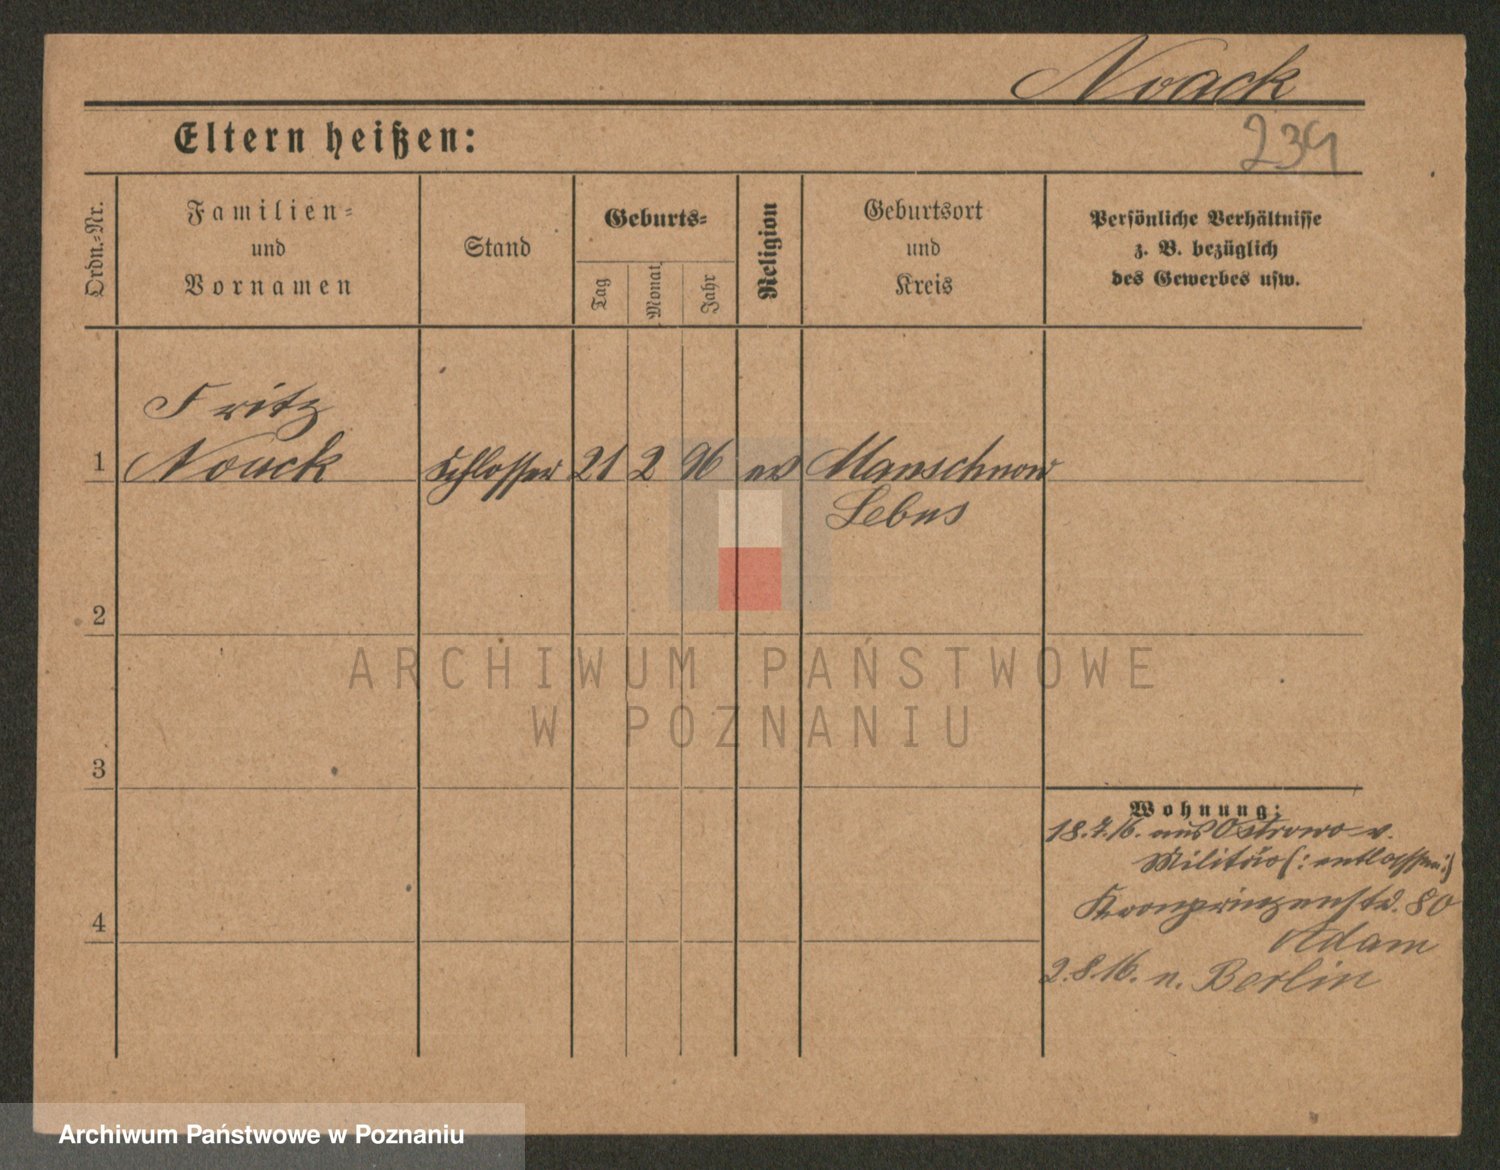 Noack
239
Eltern heißen:
Ordn.-Nr.
Familien-
und
Vornamen
Stand
Geburts-
Tag
Monat
Jahr
Religion
Geburtsort
und
Kreis
Persönliche Verhältnisse
z. B. bezüglich
des Gewerbes usw.
Fritz
1 Noack Schlosser 21 2 96 ev Manschnow
Lebus
2
3
4
Wohnung:
18.7.16. aus Ostrowo v.
Militär (: entlassen :)
Kronprinzenstr. 80
Adam
2.8.16. n. Berlin
ARCHIWUM PAŃSTWOWE
W POZNANIU
Archiwum Państwowe w Poznaniu